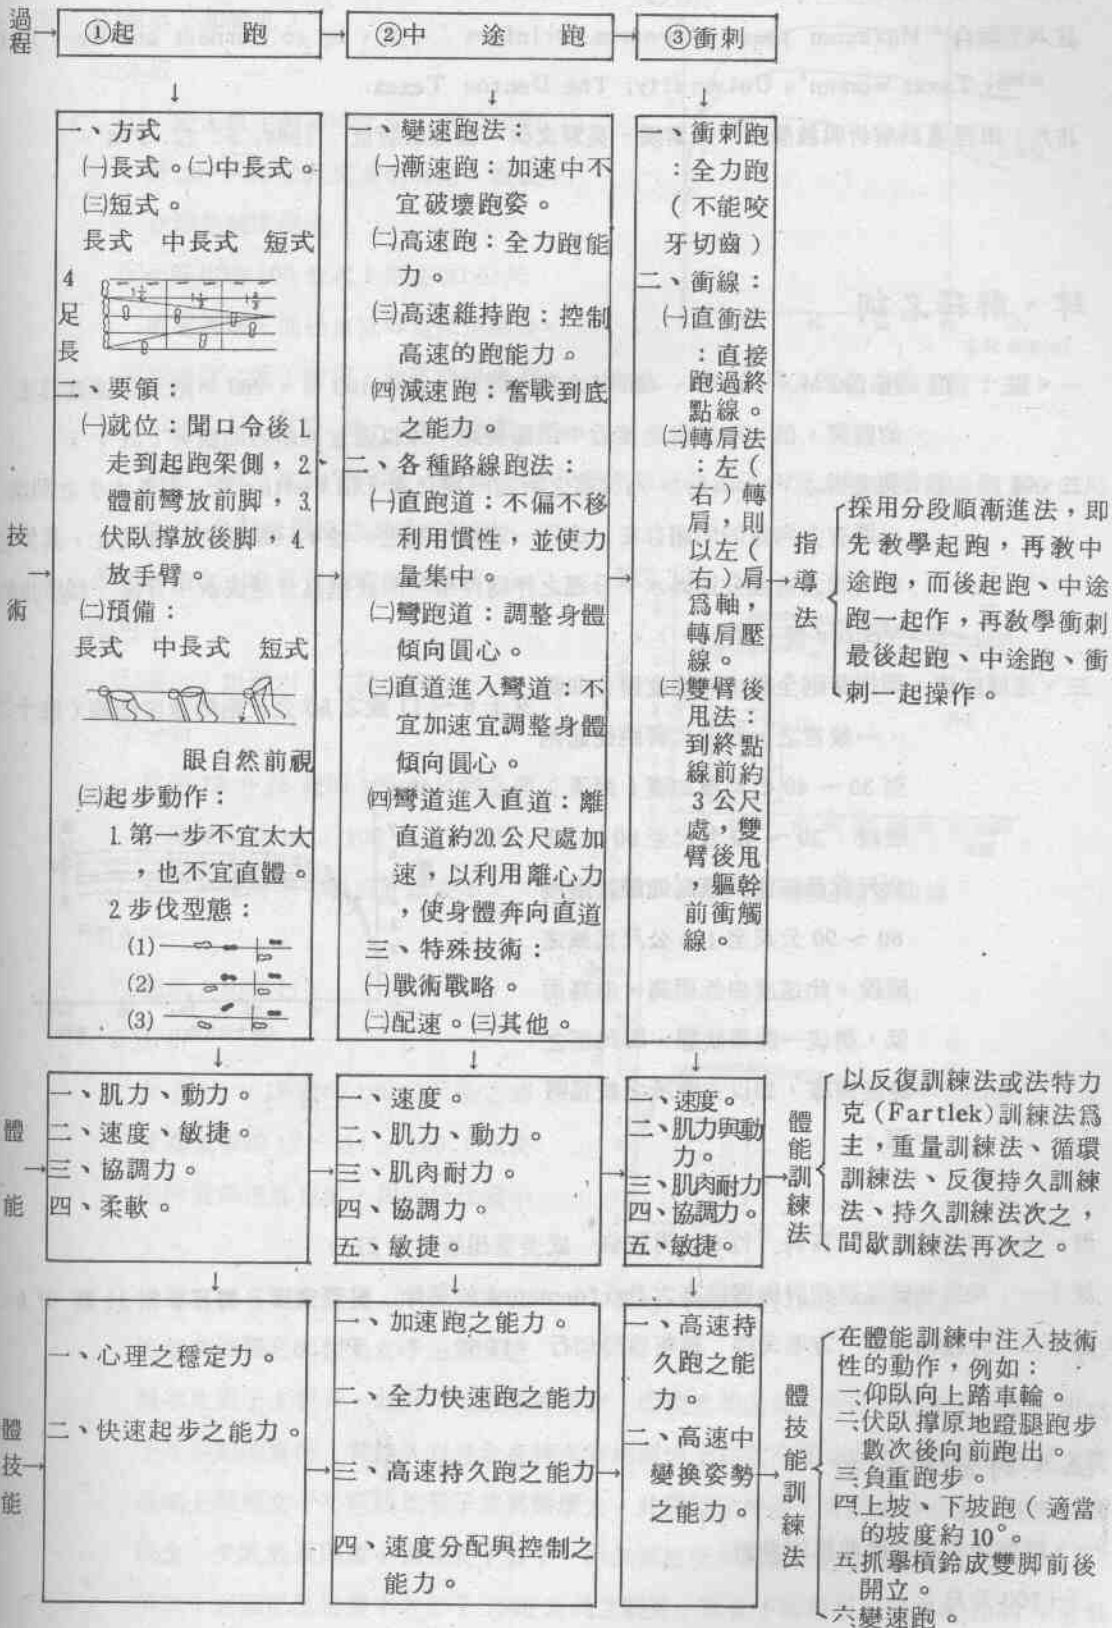 過程
①起　跑
②中　途　跑
③衝刺
技術
一、方式
㈠長式。㈡中長式。
㈢短式。
長式　中長式　短式
4足長
二、要領：
㈠就位：聞口令後1.
走到起跑架側，2、
體前彎放前脚，3.
伏臥撑放後脚，4.
放手臂。
㈡預備：
長式　中長式　短式
眼自然前視
㈢起步動作：
1.第一步不宜太大
，也不宜直體。
2步伐型態：
(1)
(2)
(3)
一、變速跑法：
㈠漸速跑：加速中不
宜破壞跑姿。
㈡高速跑：全力跑能
力。
㈢高速維持跑：控制
高速的跑能力。
㈣減速跑：奮戰到底
之能力。
二、各種路線跑法：
㈠直跑道：不偏不移
利用慣性，並使力
量集中。
㈡彎跑道：調整身體
傾向圓心。
㈢直道進入彎道：不
宜加速宜調整身體
傾向圓心。
㈣彎道進入直道：離
直道約20公尺處加
速，以利用離心力
，使身體奔向直道
三、特殊技術：
㈠戰術戰略。
㈡配速。㈢其他。
一、衝刺跑
：全力跑
（不能咬
牙切齒）
二、衝線：
㈠直衝法
：直接
跑過終
點線。
㈡轉肩法
：左（
右）轉
肩，則
以左（
右）肩
爲軸，
轉肩壓
線。
㈢雙臂後
甩法：
到終點
線前約
3公尺
處，雙
臂後甩
，軀幹
前衝觸
線。
指導法
採用分段順漸進法，即
先教學起跑，再教中
途跑，而後起跑、中途
跑一起作，再教學衝刺
最後起跑、中途跑、衝
刺一起操作。
體能
一、肌力、動力。
二、速度、敏捷。
三、協調力。
四、柔軟。
一、速度。
二、肌力、動力。
三、肌肉耐力。
四、協調力。
五、敏捷。
一、速度。
二、肌力與動
力。
三、肌肉耐力
四、協調力。
五、敏捷。
體能訓練法
以反復訓練法或法特力
克(Fartlek)訓練法爲
主，重量訓練法、循環
訓練法、反復持久訓練
法、持久訓練法次之，
間歇訓練法再次之。
體技能
一、心理之穩定力。
二、快速起步之能力。
一、加速跑之能力。
二、全力快速跑之能力
三、高速持久跑之能力
四、速度分配與控制之
能力。
一、高速持
久跑之能
力。
二、高速中
變換姿勢
之能力。
體技能訓練法
在體能訓練中注入技術
性的動作，例如：
一、仰臥向上踏車輪。
二、伏臥撑原地蹬腿跑步
數次後向前跑出。
三、負重跑步。
四、上坡、下坡跑（適當
的坡度約10°。
五、抓舉槓鈴成雙脚前後
開立。
六、變速跑。